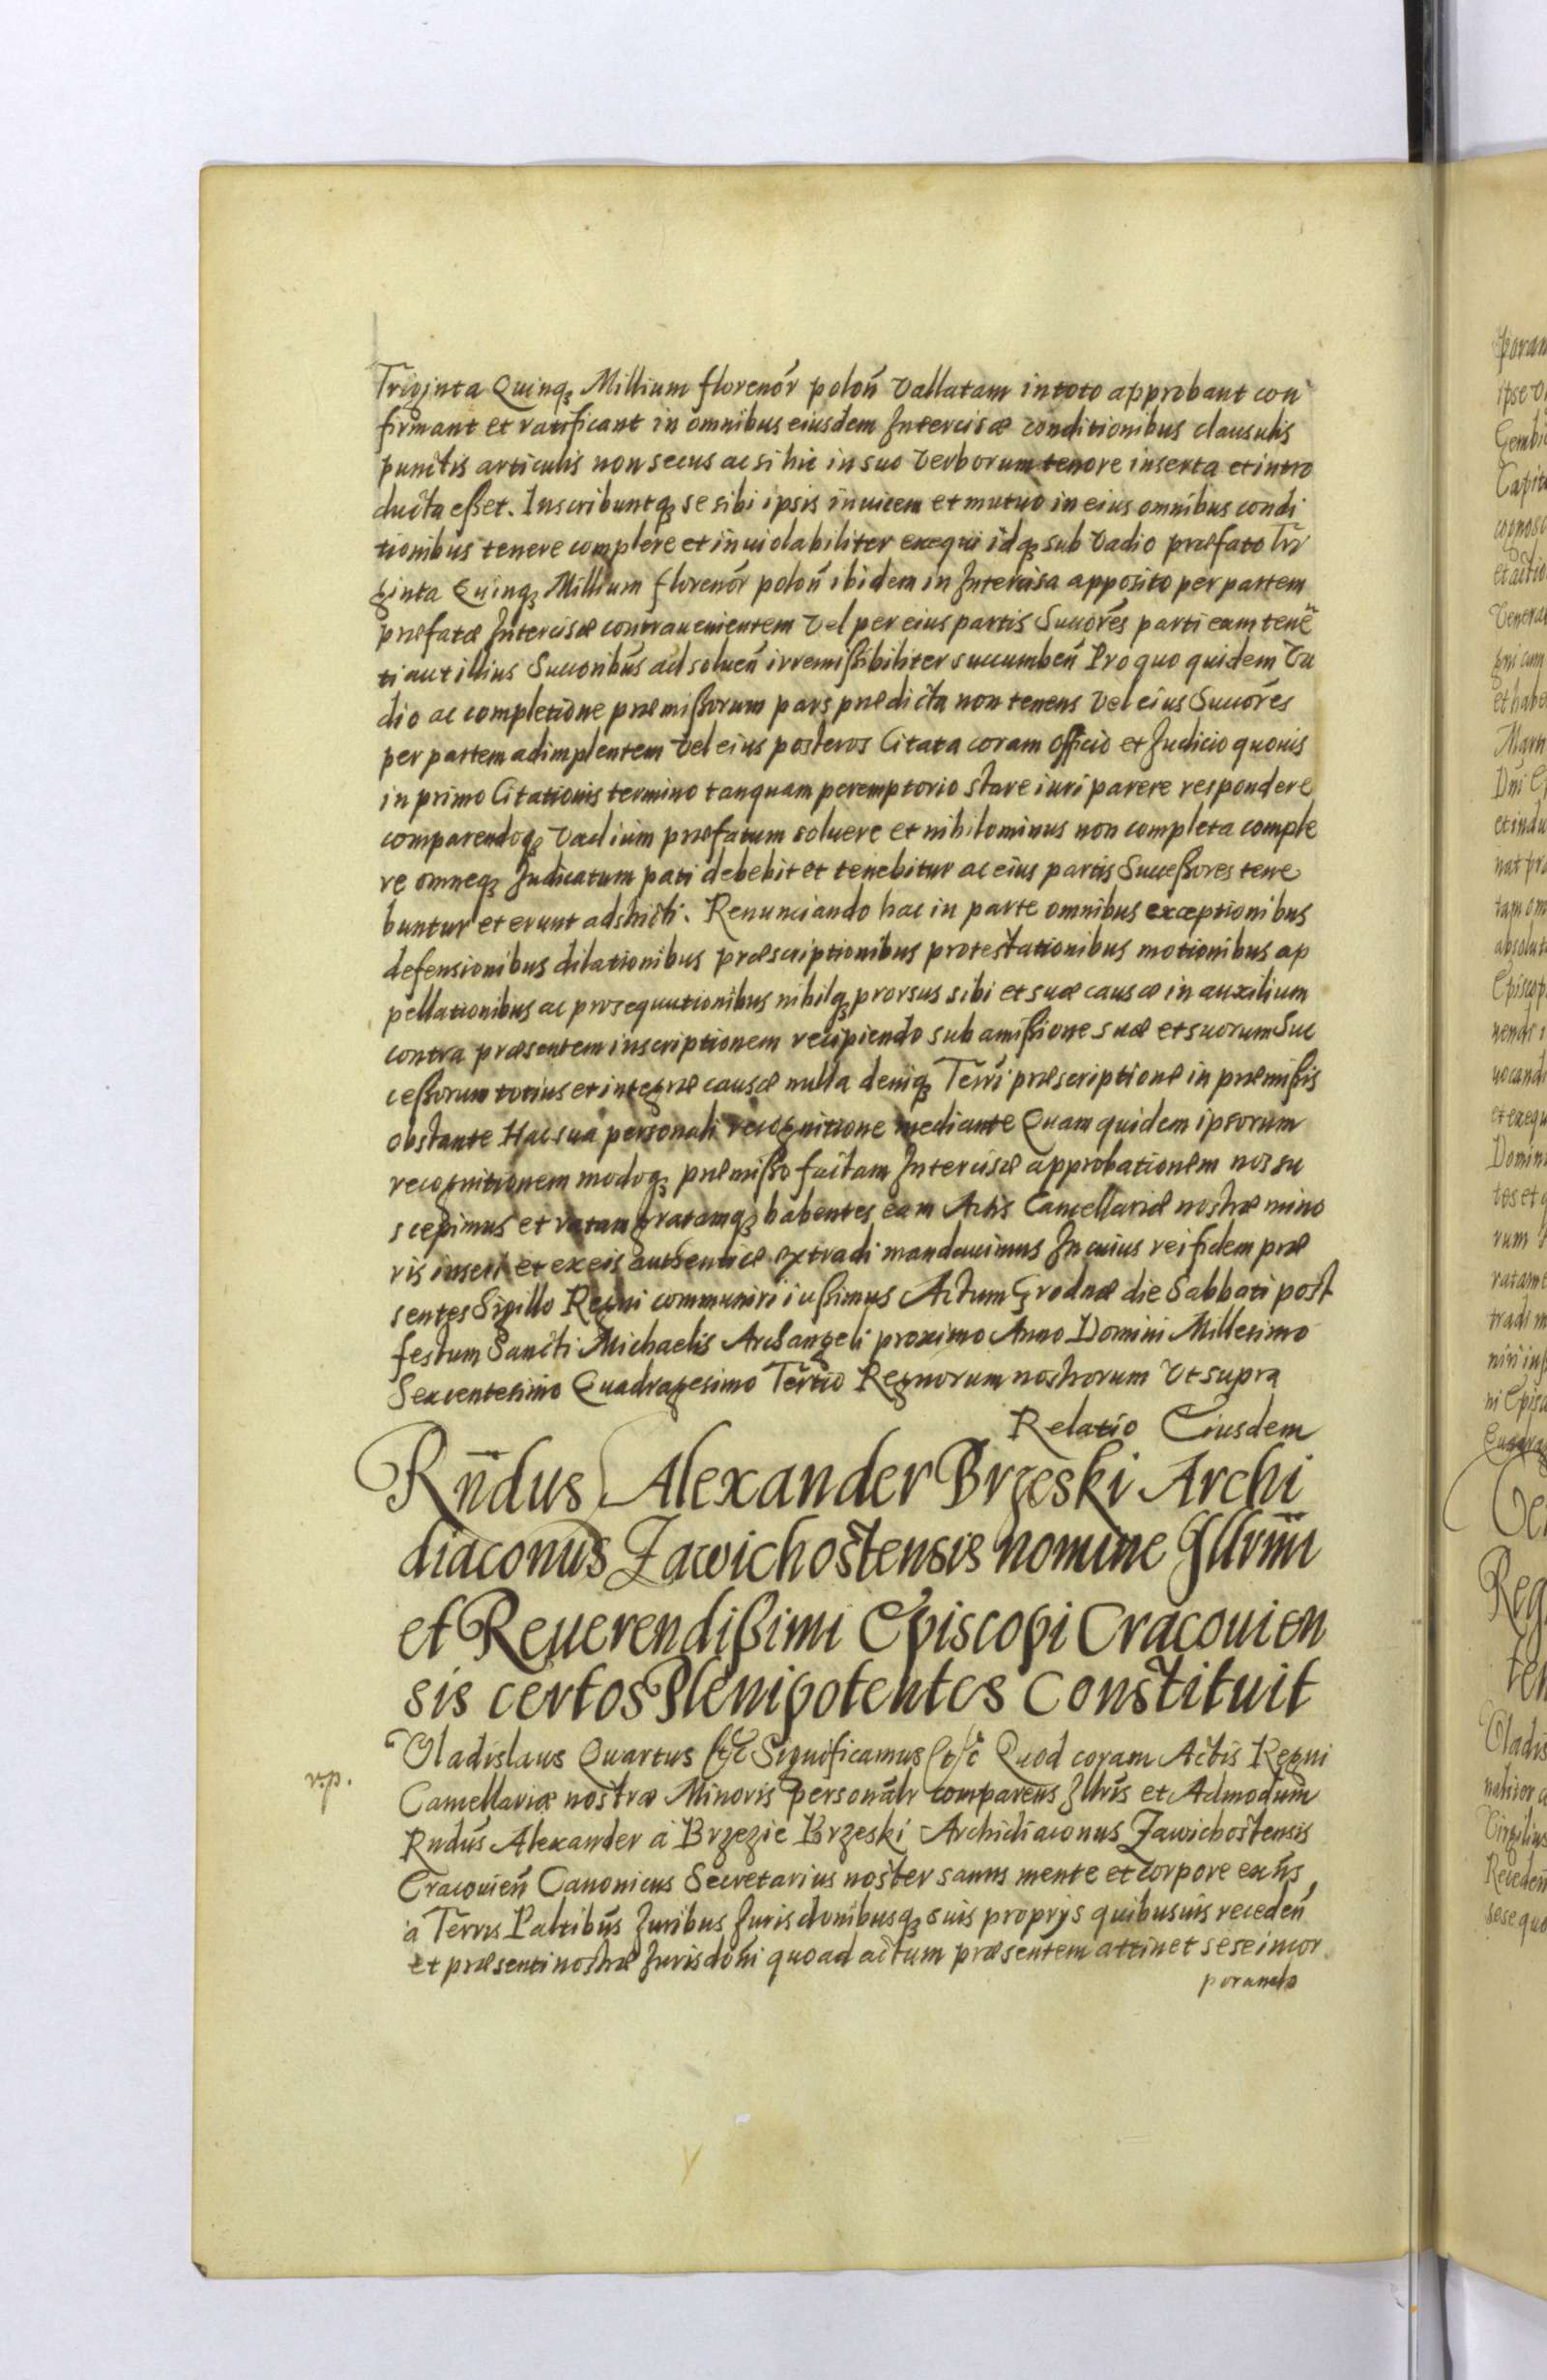 Triginta Quinq Millium florenor̄ polon̄ vallatam in toto approbant con
firmant et ratificant in omnibus eiusdem Intercisæ conditionibus clausulis
punctis articulis non secus ac si hic in suo verborum tenore inserta et intro
ducta eßet. Inscribuntq se sibi ipsis inuicem et mutuo in eius omnibus condi
tionibus tenere complere et inuiolabiliter exequi idq sub vadio præfato Tri
ginta Quinq Millium florenor̄ polon̄ ibidem in Intercisa apposito per partem
præfatæ Intercisæ contrauenientem vel per eius partis Succōres parti eam tenē
ti aut illius Succoribus ad soluen̄ irremißibiliter succumben̄ Pro quo quidem va
dio ac completione præmißorum pars prædicta non tenens vel eius Succōres
per partem adimplentem vel eius posteros Citata coram officio et Iudicio quouis
in primo Citationis termino tanquam peremptorio stare iuri parere respondere
comparendoq vadium præfatum soluere et nihilominus non completa comple
re omneq Iudicatum pati debebit et tenebitur ac eius partis Succeßores tene
buntur et erunt adstricti. Renunciando hac in parte omnibus exceptionibus
defensionibus dilationibus præscriptionibus protestationibus motionibus ap
pellationibus ac prosequutionibus nihilq prorsus sibi et suæ causæ in auxilium
contra præsentem inscriptionem recipiendo sub amißione suæ et suorum Suc
ceßorum totius et integræ causæ nulla deniq Terr̄i præscriptione in præmißis
obstante Hac sua personali recognitione mediante Quam quidem ipsorum
recognitionem modoq præmißo factam Intercisæ approbationem nos su
scepimus et ratam gratamq habentes eam Actis Cancellariæ nostræ mino
ris inseri et ex eis authenticè extradi mandauimus In cuius rei fidem præ
sentes Sigillo Regni communiri iußimus Actum Grodnæ die Sabbati post
festum Sancti Michaelis Archangeli proximo Anno Domini Millesimo
Sexcentesimo Quadragesimo Tertio Regnorum nostrorum vt supra
Relatio Eiusdem
Rn̄dus Alexander Brzeski Archi
diaconus Zawichostensis nomine Illrm̄i
et Reuerendißimi Episcopi Cracouien
sis certos Plenipotentes Constituit
Vladislaus Quartus &c Significamus &c Quod coram Actis Regni
r.p.
Cancellariæ nostræ Minoris personalr̄ comparens Illrīs et Admodum
Rndūs Alexander à Brzezie Brzeski Archidiaconus Zawichostensis
Cracouien̄ Canonicus Secretarius noster sanus mente et corpore exn̄s
à Terris Paltibūs Iuribus Iurisdonibusq suis proprijs quibusuis receden̄
et præsenti nostræ Iurisdon̄i quoad actum præsentem attinet sese incor
porando